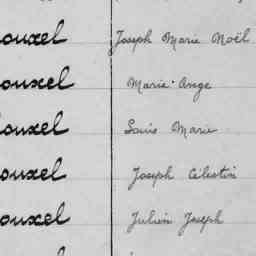 ouxel Joseph Marie Noël
ouxel Marie Ange
ouxel Louis Marie
ouxel Joseph Célestin
ouxel Julien Joseph